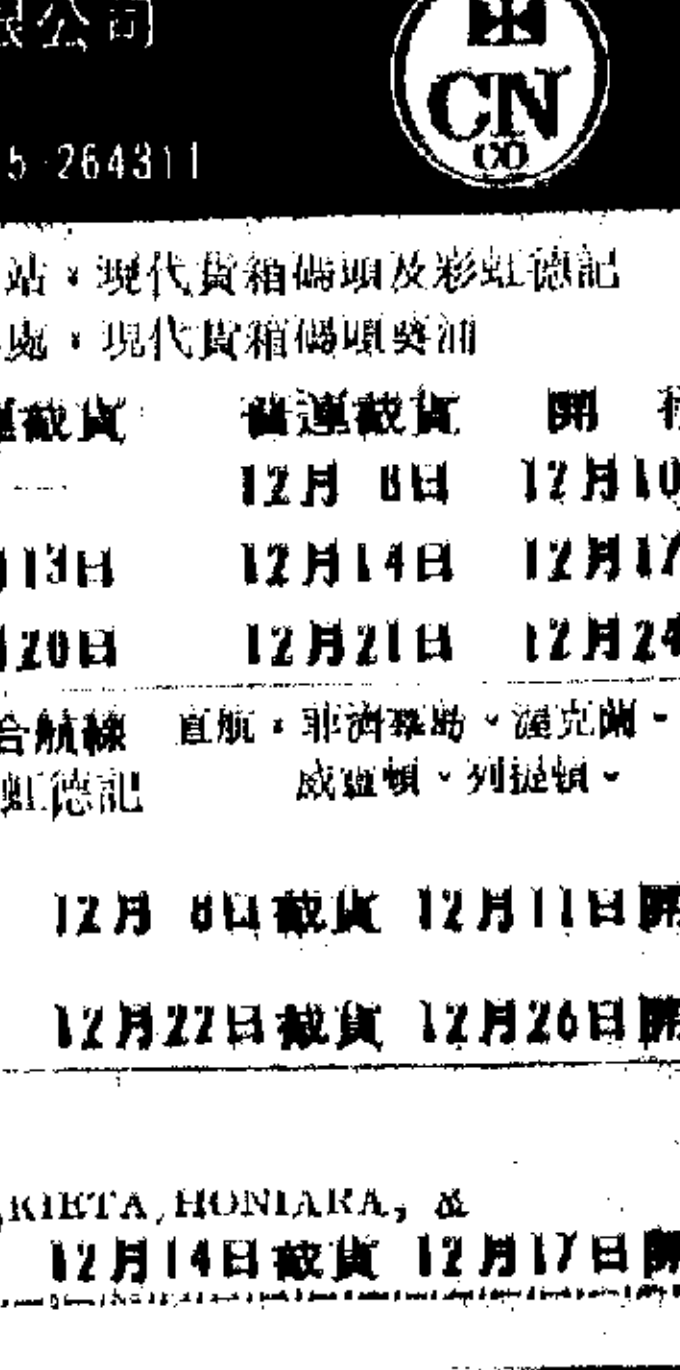 限公司
CN
CO
5-264311
站：現代貨箱碼頭及彩虹德記
處：現代貨箱碼頭
運截貨 舊運截貨 開
12月 8日 12月10
月13日 12月14日 12月17
月20日 12月21日 12月24
合航線 直航：菲濟群島、渥克蘭、
虹德記 威靈頓、列提頓、
12月 8日截貨 12月11日開
12月22日截貨 12月26日開
,KIETA,HONIARA, &
12月14日截貨 12月17日開